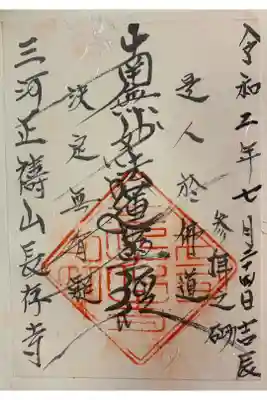 令和二年七月二十四日吉辰
参拝之砌
是人於佛道
南無妙法蓮華経
決定無有疑
三河正壽山長存寺